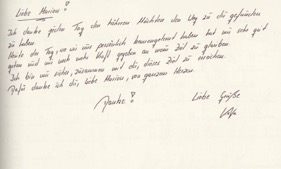 Liebe Marion!
Ich danke jeden Tag den höheren Mächten den Weg zu dir gefunden
zu haben.
Heute der Tag, wo wir uns persönlich kennengelernt haben hat mir sehr gut
getan und mir noch mehr Kraft gegeben an mein Ziel zu glauben.
Ich bin mir sicher, zusammen mit dir, dieses Ziel zu erreichen.
Dafür danke ich dir, liebe Marion, von ganzem Herzen.
Danke! Liebe Grüße